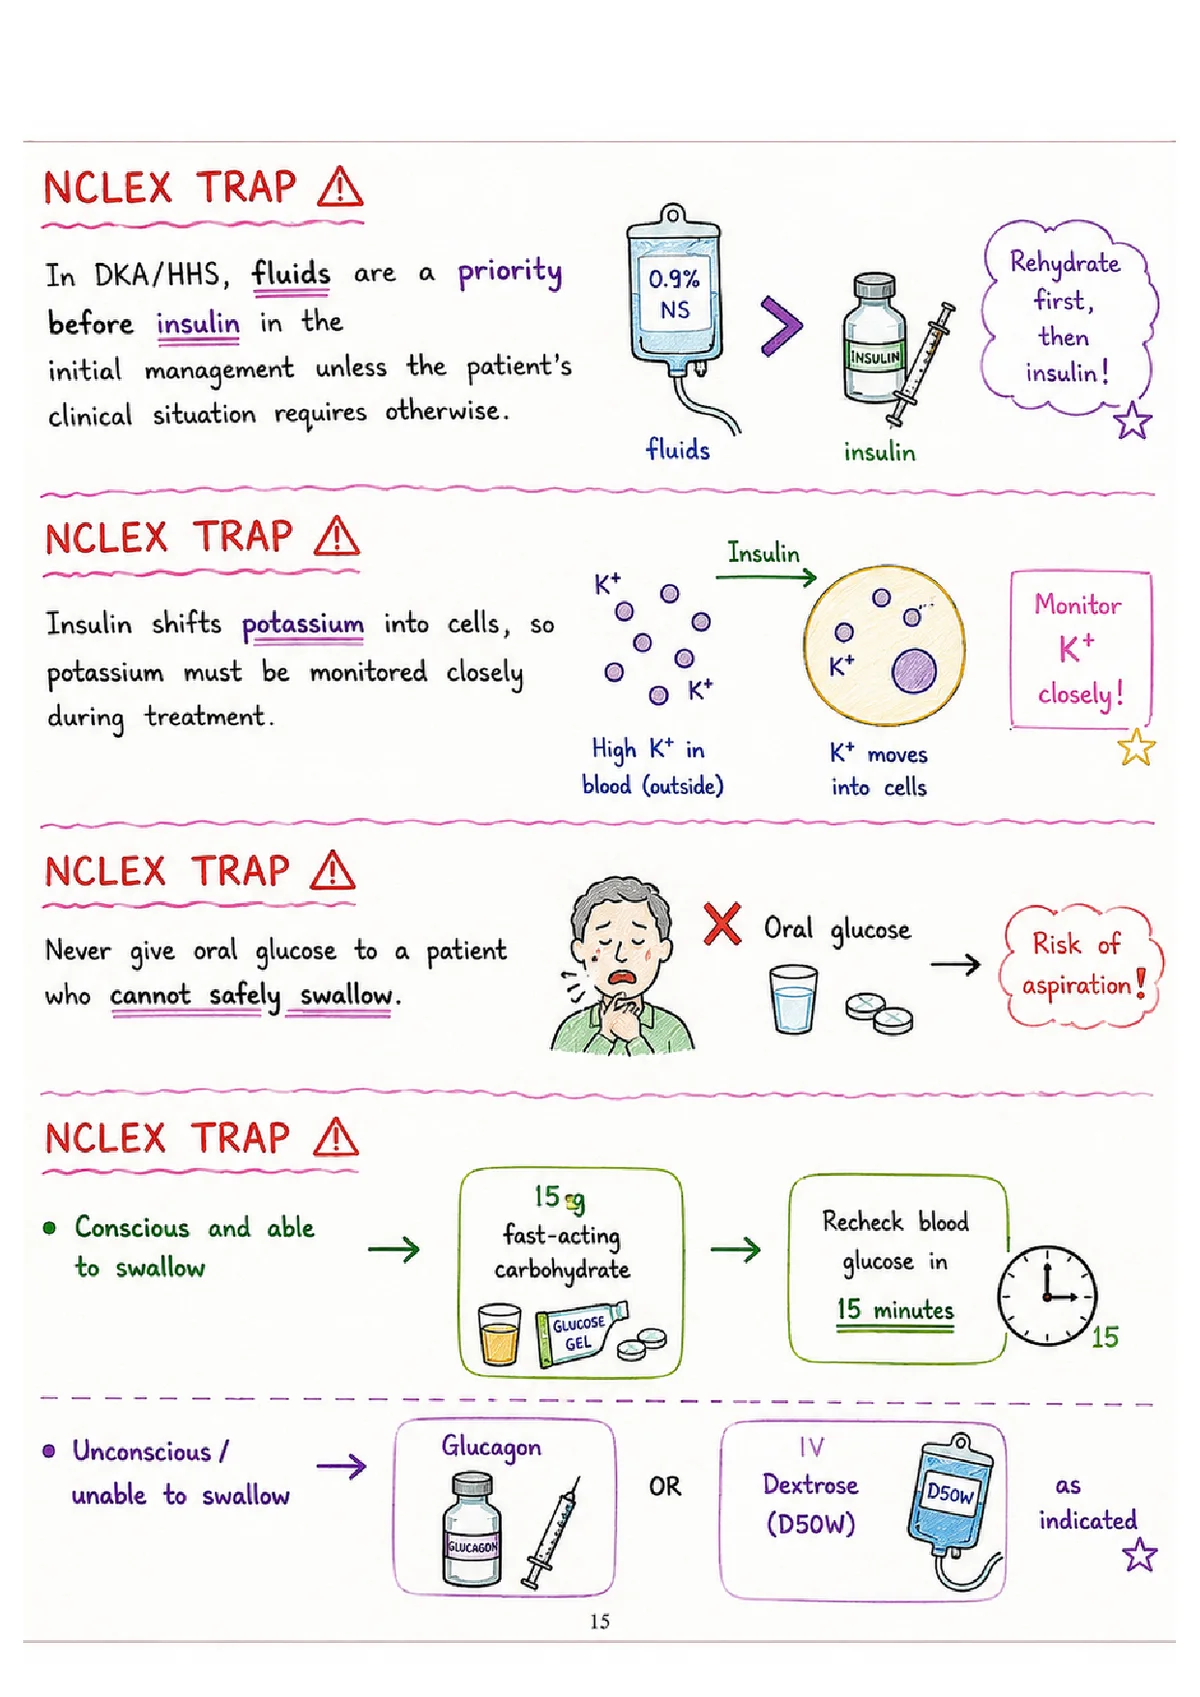 NCLEX TRAP
In DKA/HHS, fluids are a priority
before insulin in the
initial management unless the patient's
clinical situation requires otherwise.
0.9%
NS
fluids
INSULIN
insulin
Rehydrate
first,
then
insulin!
NCLEX TRAP
Insulin shifts potassium into cells, so
potassium must be monitored closely
during treatment.
K+
K+
High K+ in
blood (outside)
Insulin
K+
K+ moves
into cells
Monitor
K+
closely!
NCLEX TRAP
Never give oral glucose to a patient
who cannot safely swallow.
Oral glucose
Risk of
aspiration!
NCLEX TRAP
• Conscious and able
to swallow
15 g
fast-acting
carbohydrate
GLUCOSE
GEL
Recheck blood
glucose in
15 minutes
15
• Unconscious /
unable to swallow
Glucagon
GLUCAGON
OR
IV
Dextrose
(D50W)
D50W
as
indicated
15